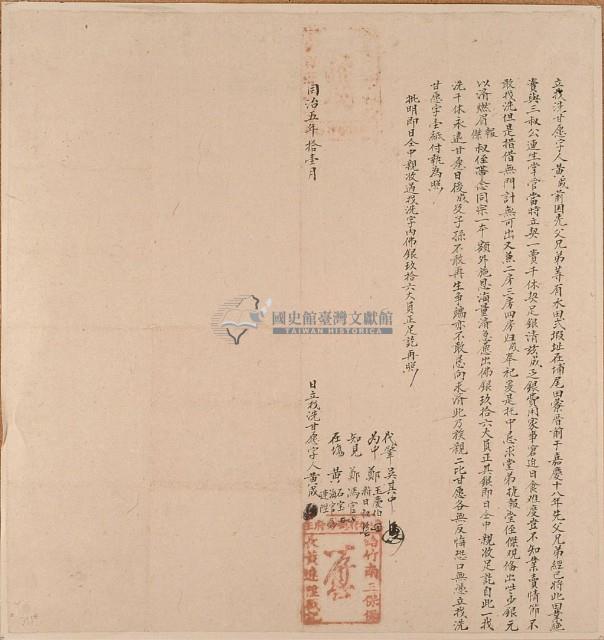 立找洗甘愿字人黃成前因先父兄弟等有水田弍塅址在埔尾田藔厝前于嘉慶十八年先父兄弟經已將此田業
賣與三叔公連生掌管當時立契一賣千休契足銀清玆成乏銀費用家事窘迫日食难度豈不知業賣情節不
敢找洗但是措借無門計無可出又兼二房三房四房归成奉祀爰是托中懇求堂弟捷報堂侄傑現俻出些少銀元
以濟燃眉報傑叔侄帶念同宗一本額外施恩
出佛銀玖拾六大員正其銀即日仝中親收足訖自此一找
洗千休永遠甘愿日後成及子孫不敢再生事端亦不敢
此乃
二比甘愿各無反悔恐口無憑立找洗
甘愿字壹紙付執為照
批明即日仝中親收過找洗字內佛銀玖拾六大員正足訖再照
同治五年拾壹月
代筆吳其中
為中鄭
知見鄭馮官
在塲黃
日立找洗甘愿字人黃成
竹南三保
國史館臺灣文獻館
TAIWAN HISTORICA